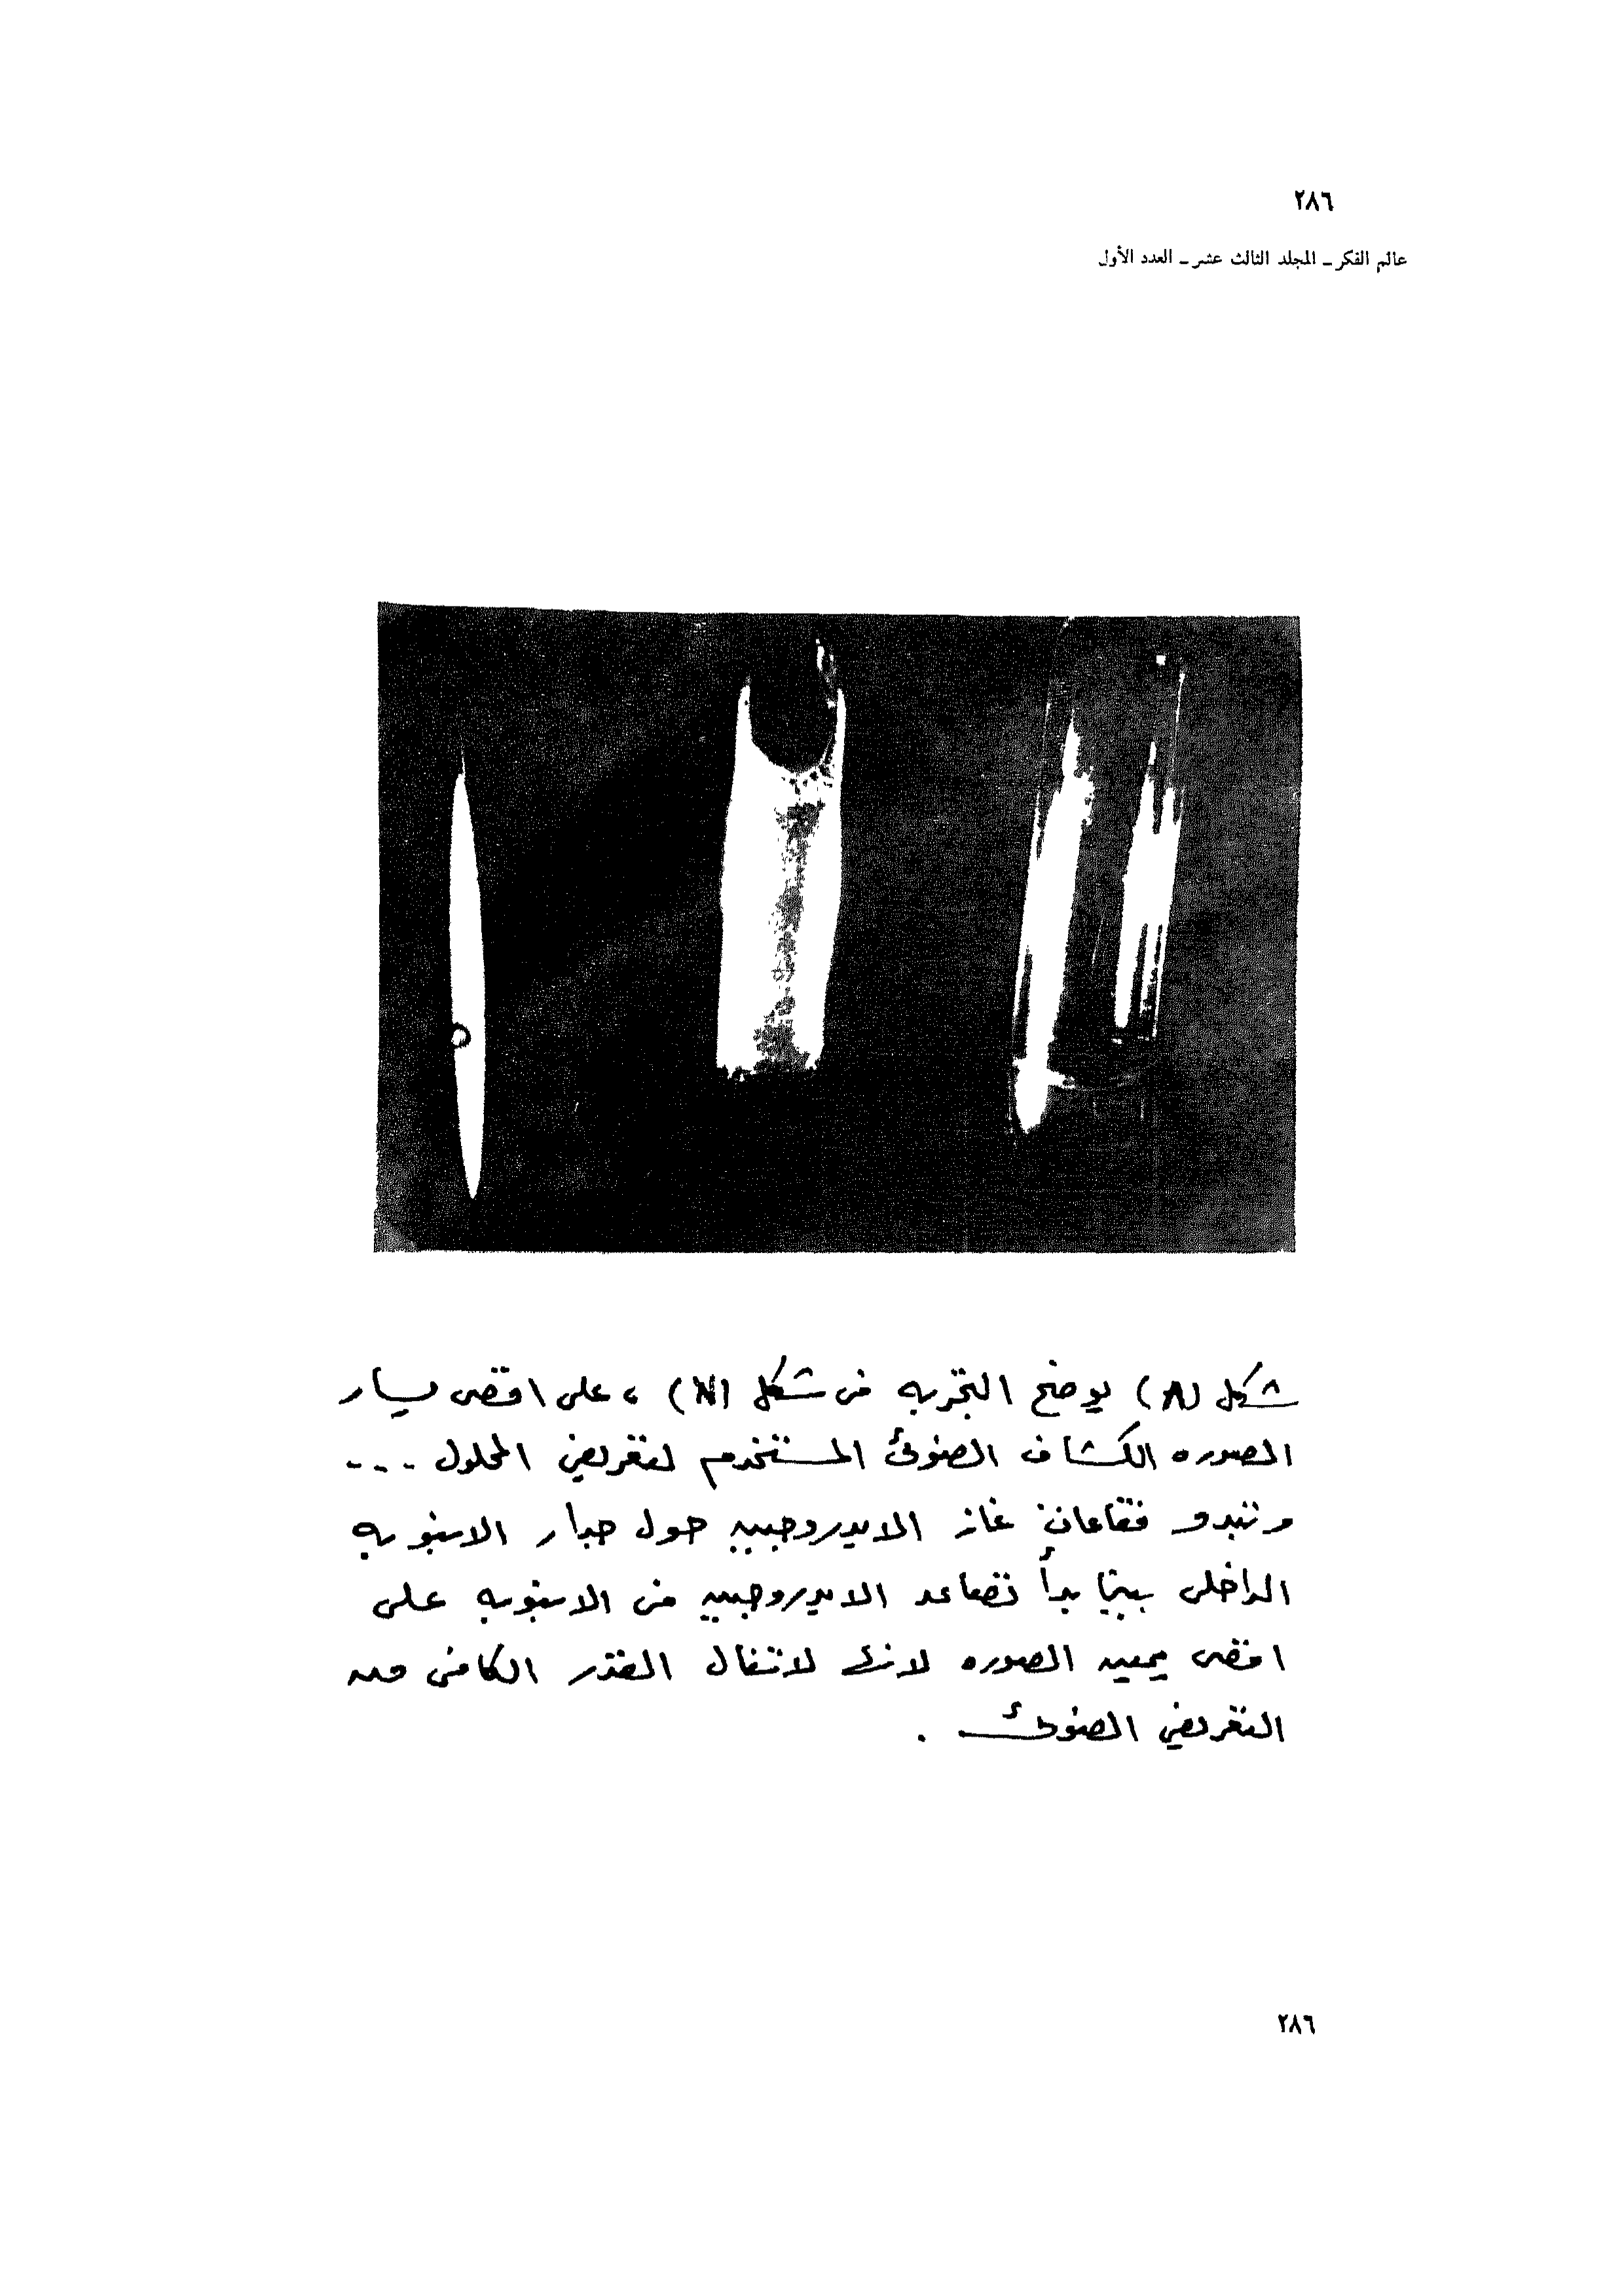 ٢٨٦
عالم الفكر ـ المجلد الثالث عشر ـ العدد الأول
شكل (٨) يوضح التجربه فى شكل (٧) ، على اقصى يسار
الصوره الكشاف الضوئى المستخدم لتعريض المحلول ...
وتبدو فقاعات غاز الايدروجين حول جدار الانبوبه
الداخلى بينما بدأ تصاعد الايدروجين فى الانبوبه على
اقصى يمين الصوره لانتقال القدر الكافى من
التعريض الضوئى .
٢٨٦